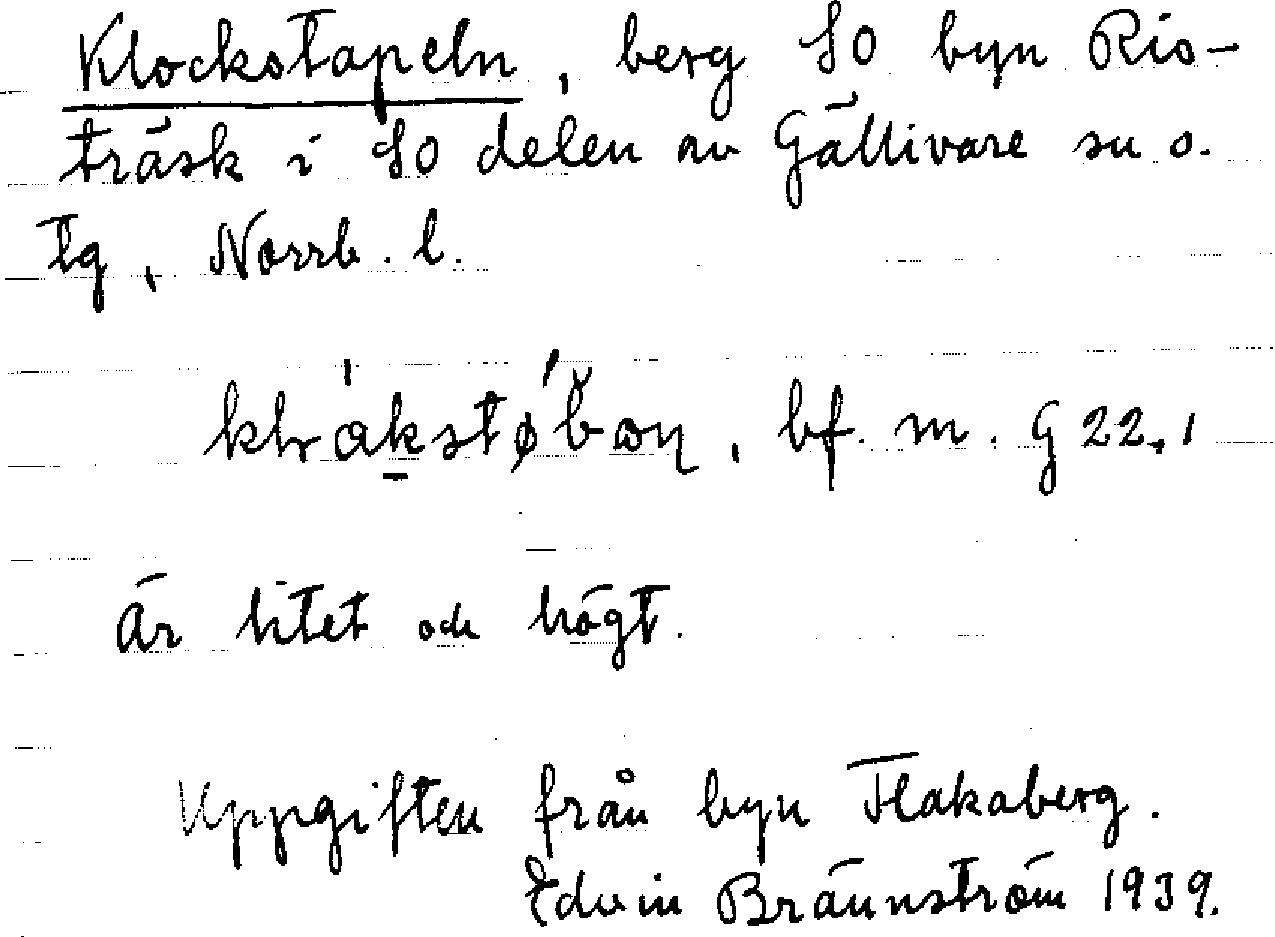 Klockstapeln, berg SO byn Ris-
träsk i SO delen av Gällivare sn o.
tg, Norrb. l.
bf. m. G 22,1
är litet och högt.
Uppgiften från byn Flakaberg.
Edvin Brännström 1939.